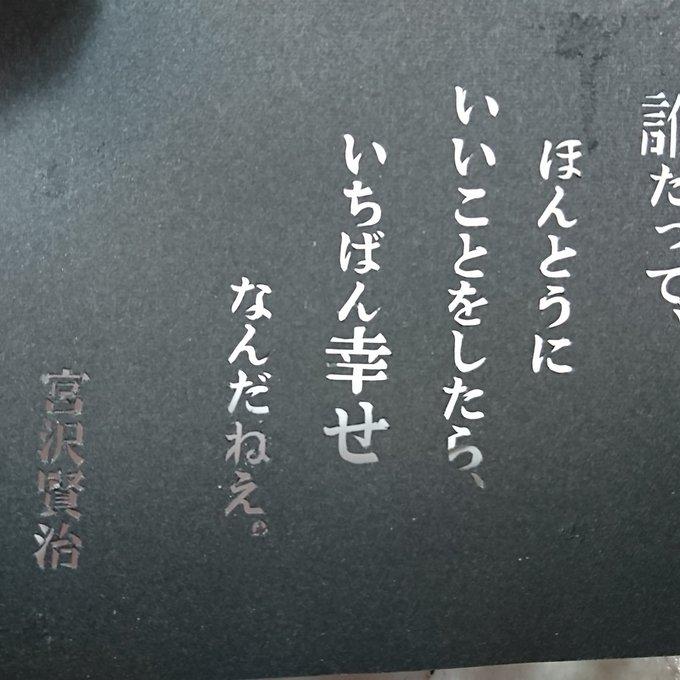 誰だって、
ほんとうに
いいことをしたら、
いちばん幸せ
なんだねえ。
宮沢賢治